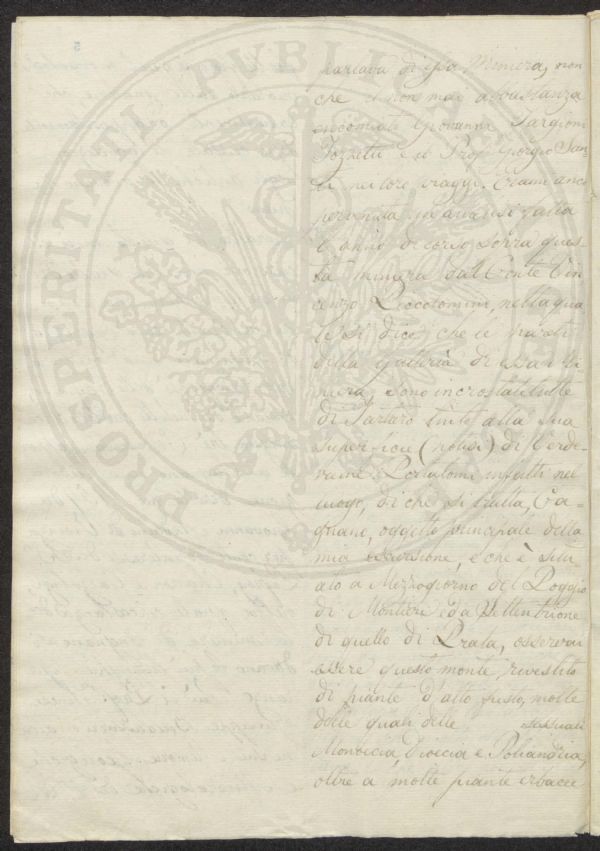 5
PROSPERITATI PVBLICAE
parlava di essa Miniera, non
che i non mai abbastanza
encomiati Giovanni Targioni
Tozzetti e il Prof. Giorgio San-
ti ne loro viaggi. Erami anco
pervenuta
l'anno decorso sopra ques-
ta miniera dal Conte Vin-
cenzo Piccolomini, nella qua
le si dice, che le pareti
della Galleria di
sono incrostate tutte
di Tartaro tinte alla sua
superficie (notisi) di Verde-
rame. Portatomi infatti nel
luogo, di che si tratta,
oggetto principale della
mia escursione, e che è situ-
ato a Mezzogiorno del Poggio
di Montieri e a Settentrione
di quello di Prata, osservai
essere questo monte rivestito
di piante d'alto fusto, molte
delle quali delle sessuali
Monoecia, Dioecia e Poliandria,
oltre a molte piante erbacee